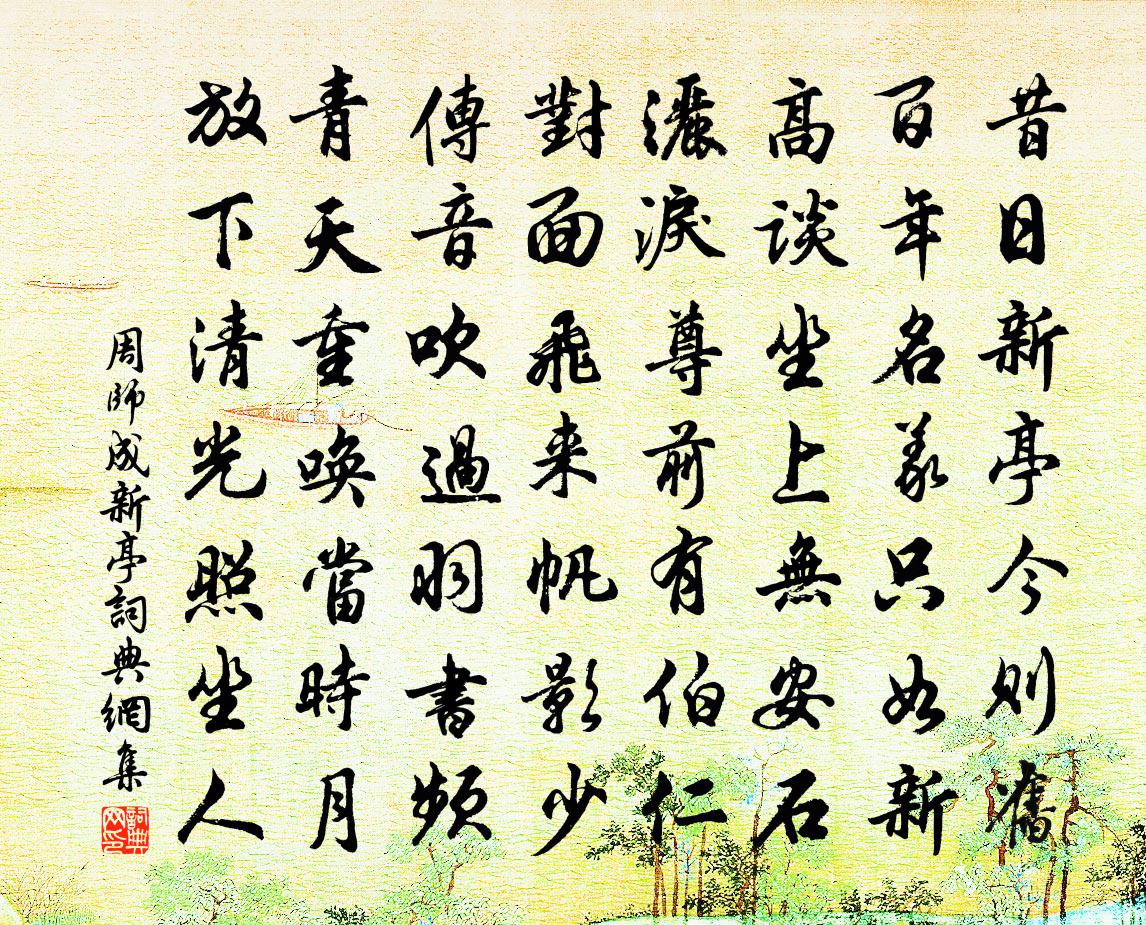 昔日新亭今則舊
百年名義只如新
高談坐上無安石
灑淚尊前有伯仁
對面飛来帆影少
傳音吹過羽書頻
青天重喚當時月
放下清光照坐人
周師成新亭詞典網集
詞典
网印